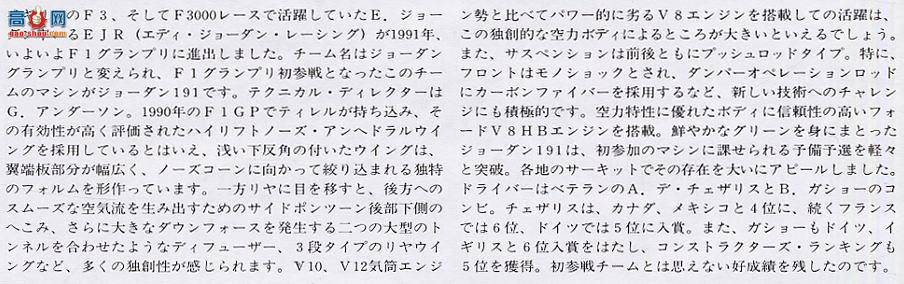 のＦ３、そしてＦ3000レースで活躍していたＥ．ジョー
るＥＪＲ（エディ・ジョーダン・レーシング）が1991年、
いよいよＦ１グランプリに進出しました。チーム名はジョーダン
グランプリと変えられ、Ｆ１グランプリ初参戦となったこのチー
ムのマシンがジョーダン191です。テクニカル・ディレクターは
Ｇ．アンダーソン。1990年のＦ１ＧＰでティレルが持ち込み、そ
の有効性が高く評価されたハイリフトノーズ・アンヘドラルウイ
ングを採用しているとはいえ、浅い下反角の付いたウイングは、
翼端板部分が幅広く、ノーズコーンに向かって絞り込まれる独特
のフォルムを形作っています。一方リヤに目を移すと、後方への
スムーズな空気流を生み出すためのサイドポンツーン後部下側の
へこみ、さらに大きなダウンフォースを発生する二つの大型のト
ンネルを合わせたようなディフューザー、３段タイプのリヤウイ
ングなど、多くの独創性が感じられます。Ｖ10、Ｖ12気筒エンジ
ン勢と比べてパワー的に劣るＶ８エンジンを搭載しての活躍は、
この独創的な空力ボディによるところが大きいといえるでしょう。
また、サスペンションは前後ともにプッシュロッドタイプ。特に、
フロントはモノショックとされ、ダンパーオペレーションロッド
にカーボンファイバーを採用するなど、新しい技術へのチャレン
ジにも積極的です。空力特性に優れたボディに信頼性の高いフォ
ードＶ８ＨＢエンジンを搭載。鮮やかなグリーンを身にまとった
ジョーダン191は、初参加のマシンに課せられる予備予選を軽々
と突破。各地のサーキットでその存在を大いにアピールしました。
ドライバーはベテランのＡ．デ・チェザリスとＢ．ガショーのコ
ンビ。チェザリスは、カナダ、メキシコと４位に、続くフランス
では６位、ドイツでは５位に入賞。また、ガショーもドイツ、イ
ギリスと６位入賞をはたし、コンストラクターズ・ランキングも
５位を獲得。初参戦チームとは思えない好成績を残したのです。